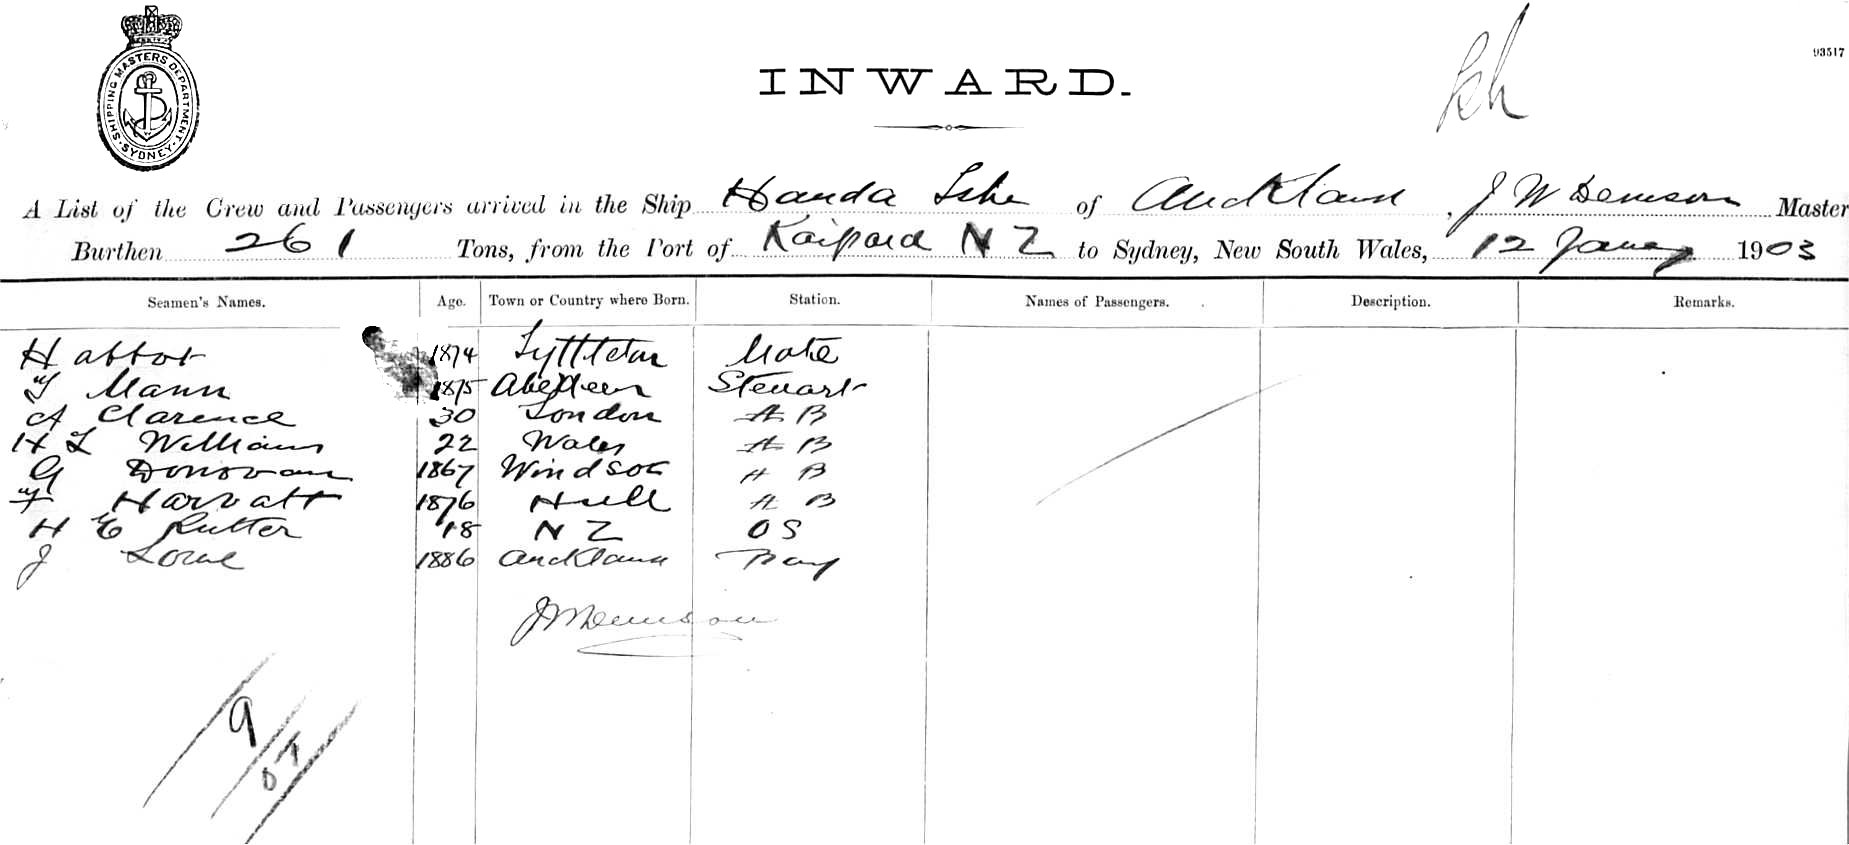 SHIPPING MASTERS DEPARTMENT. SYDNEY.
93517
INWARD.
A List of the Crew and Passengers arrived in the Ship Handa Isle of Auckland, J W Denison Master
Burthen 261 Tons, from the Port of Kaipara N Z to Sydney, New South Wales, 12 January 1903
Seamen's Names. Age. Town or Country where Born. Station. Names of Passengers. Description. Remarks.
H abbot 1874 Lyttleton Mate
Mann 1875 Aberdeen Steuart
A Clarence 30 London A B
H L Williams 22 Wales A B
G Donovan 1867 Windsor A B
Harvatt 1876 Hull A B
H E Rutter 18 N Z O S
J Lowe 1886 Auckland Boy
J W Denison
9